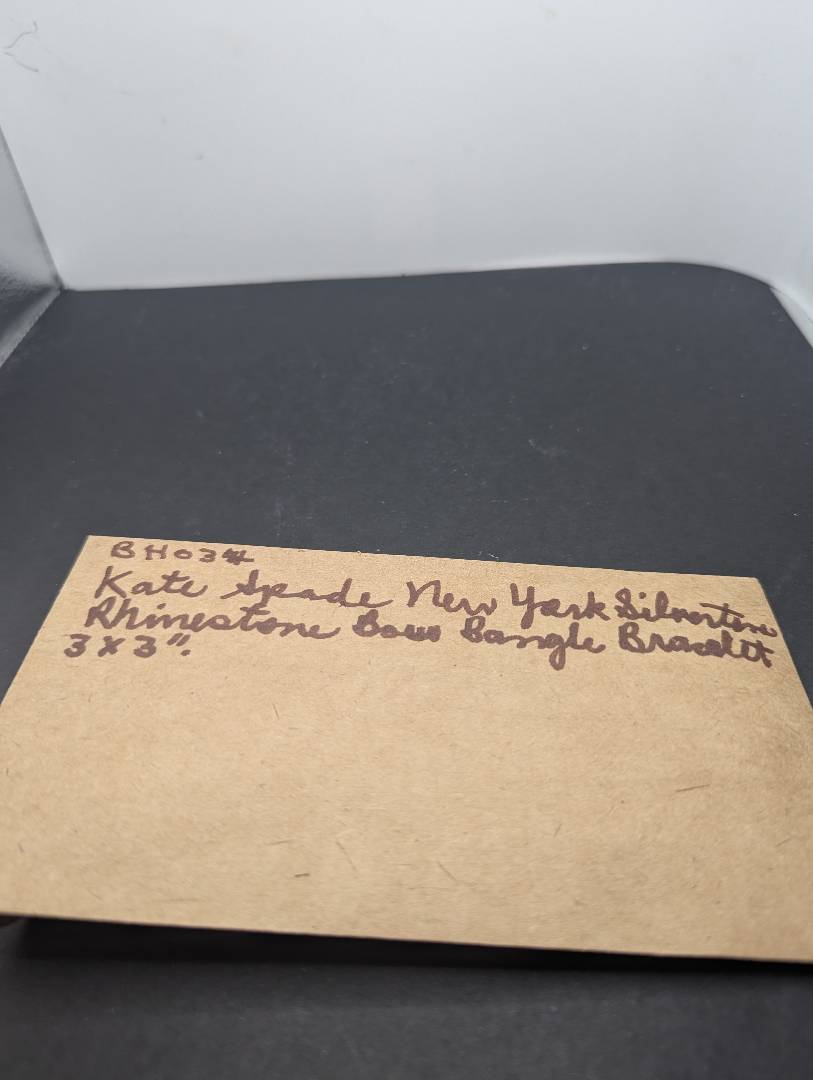 BH03#
Kate Spade New York Silvertone
Rhinestone Bow Bangle Bracelet
3 x 3".